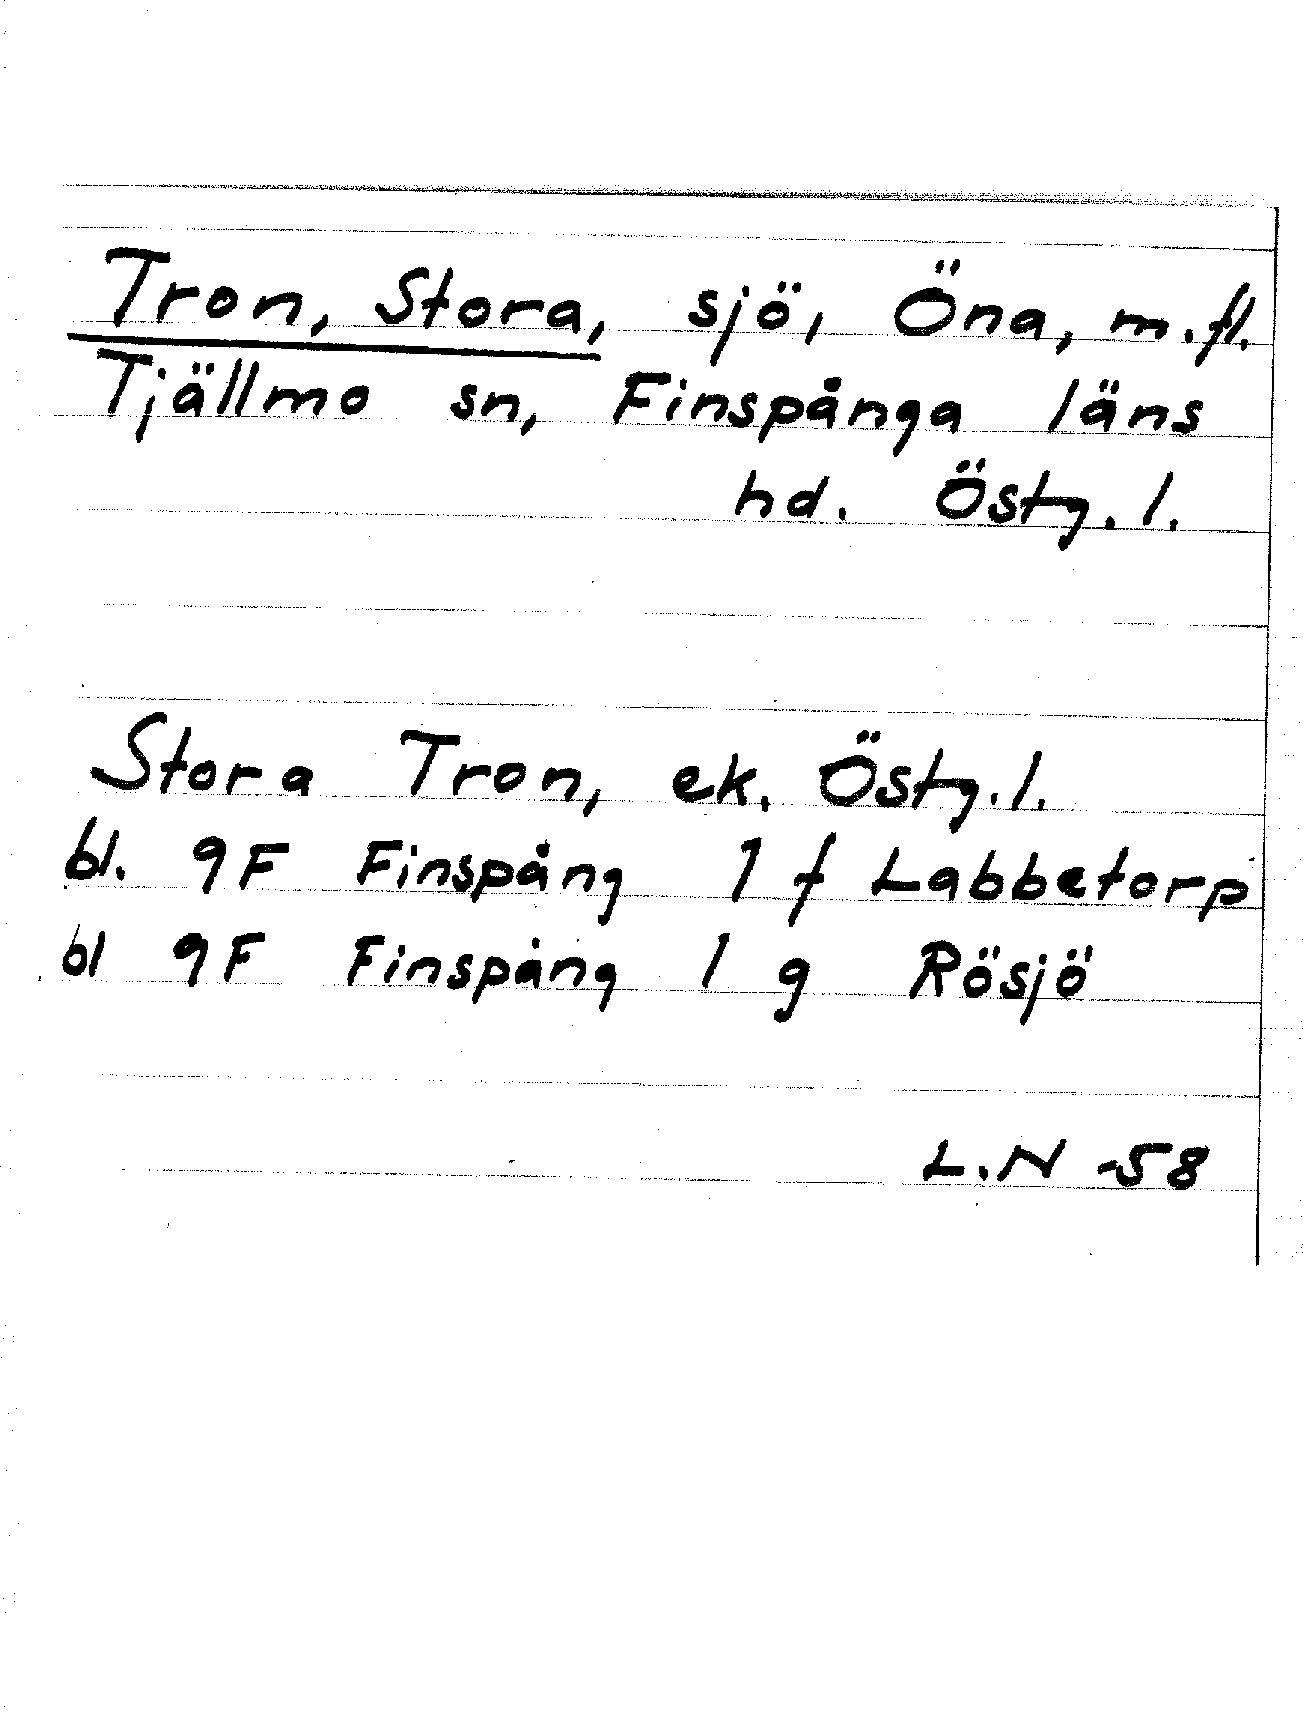 Tron, Stora, sjö, Öna, m.fl.
Tjällmo sn, Finspånga läns
hd. Östg.l.
Stora Tron, ek. Östg.l.
bl. 9F Finspång 1 f Labbetorp
bl 9F Finspång 1 g Rösjö
L.N -58